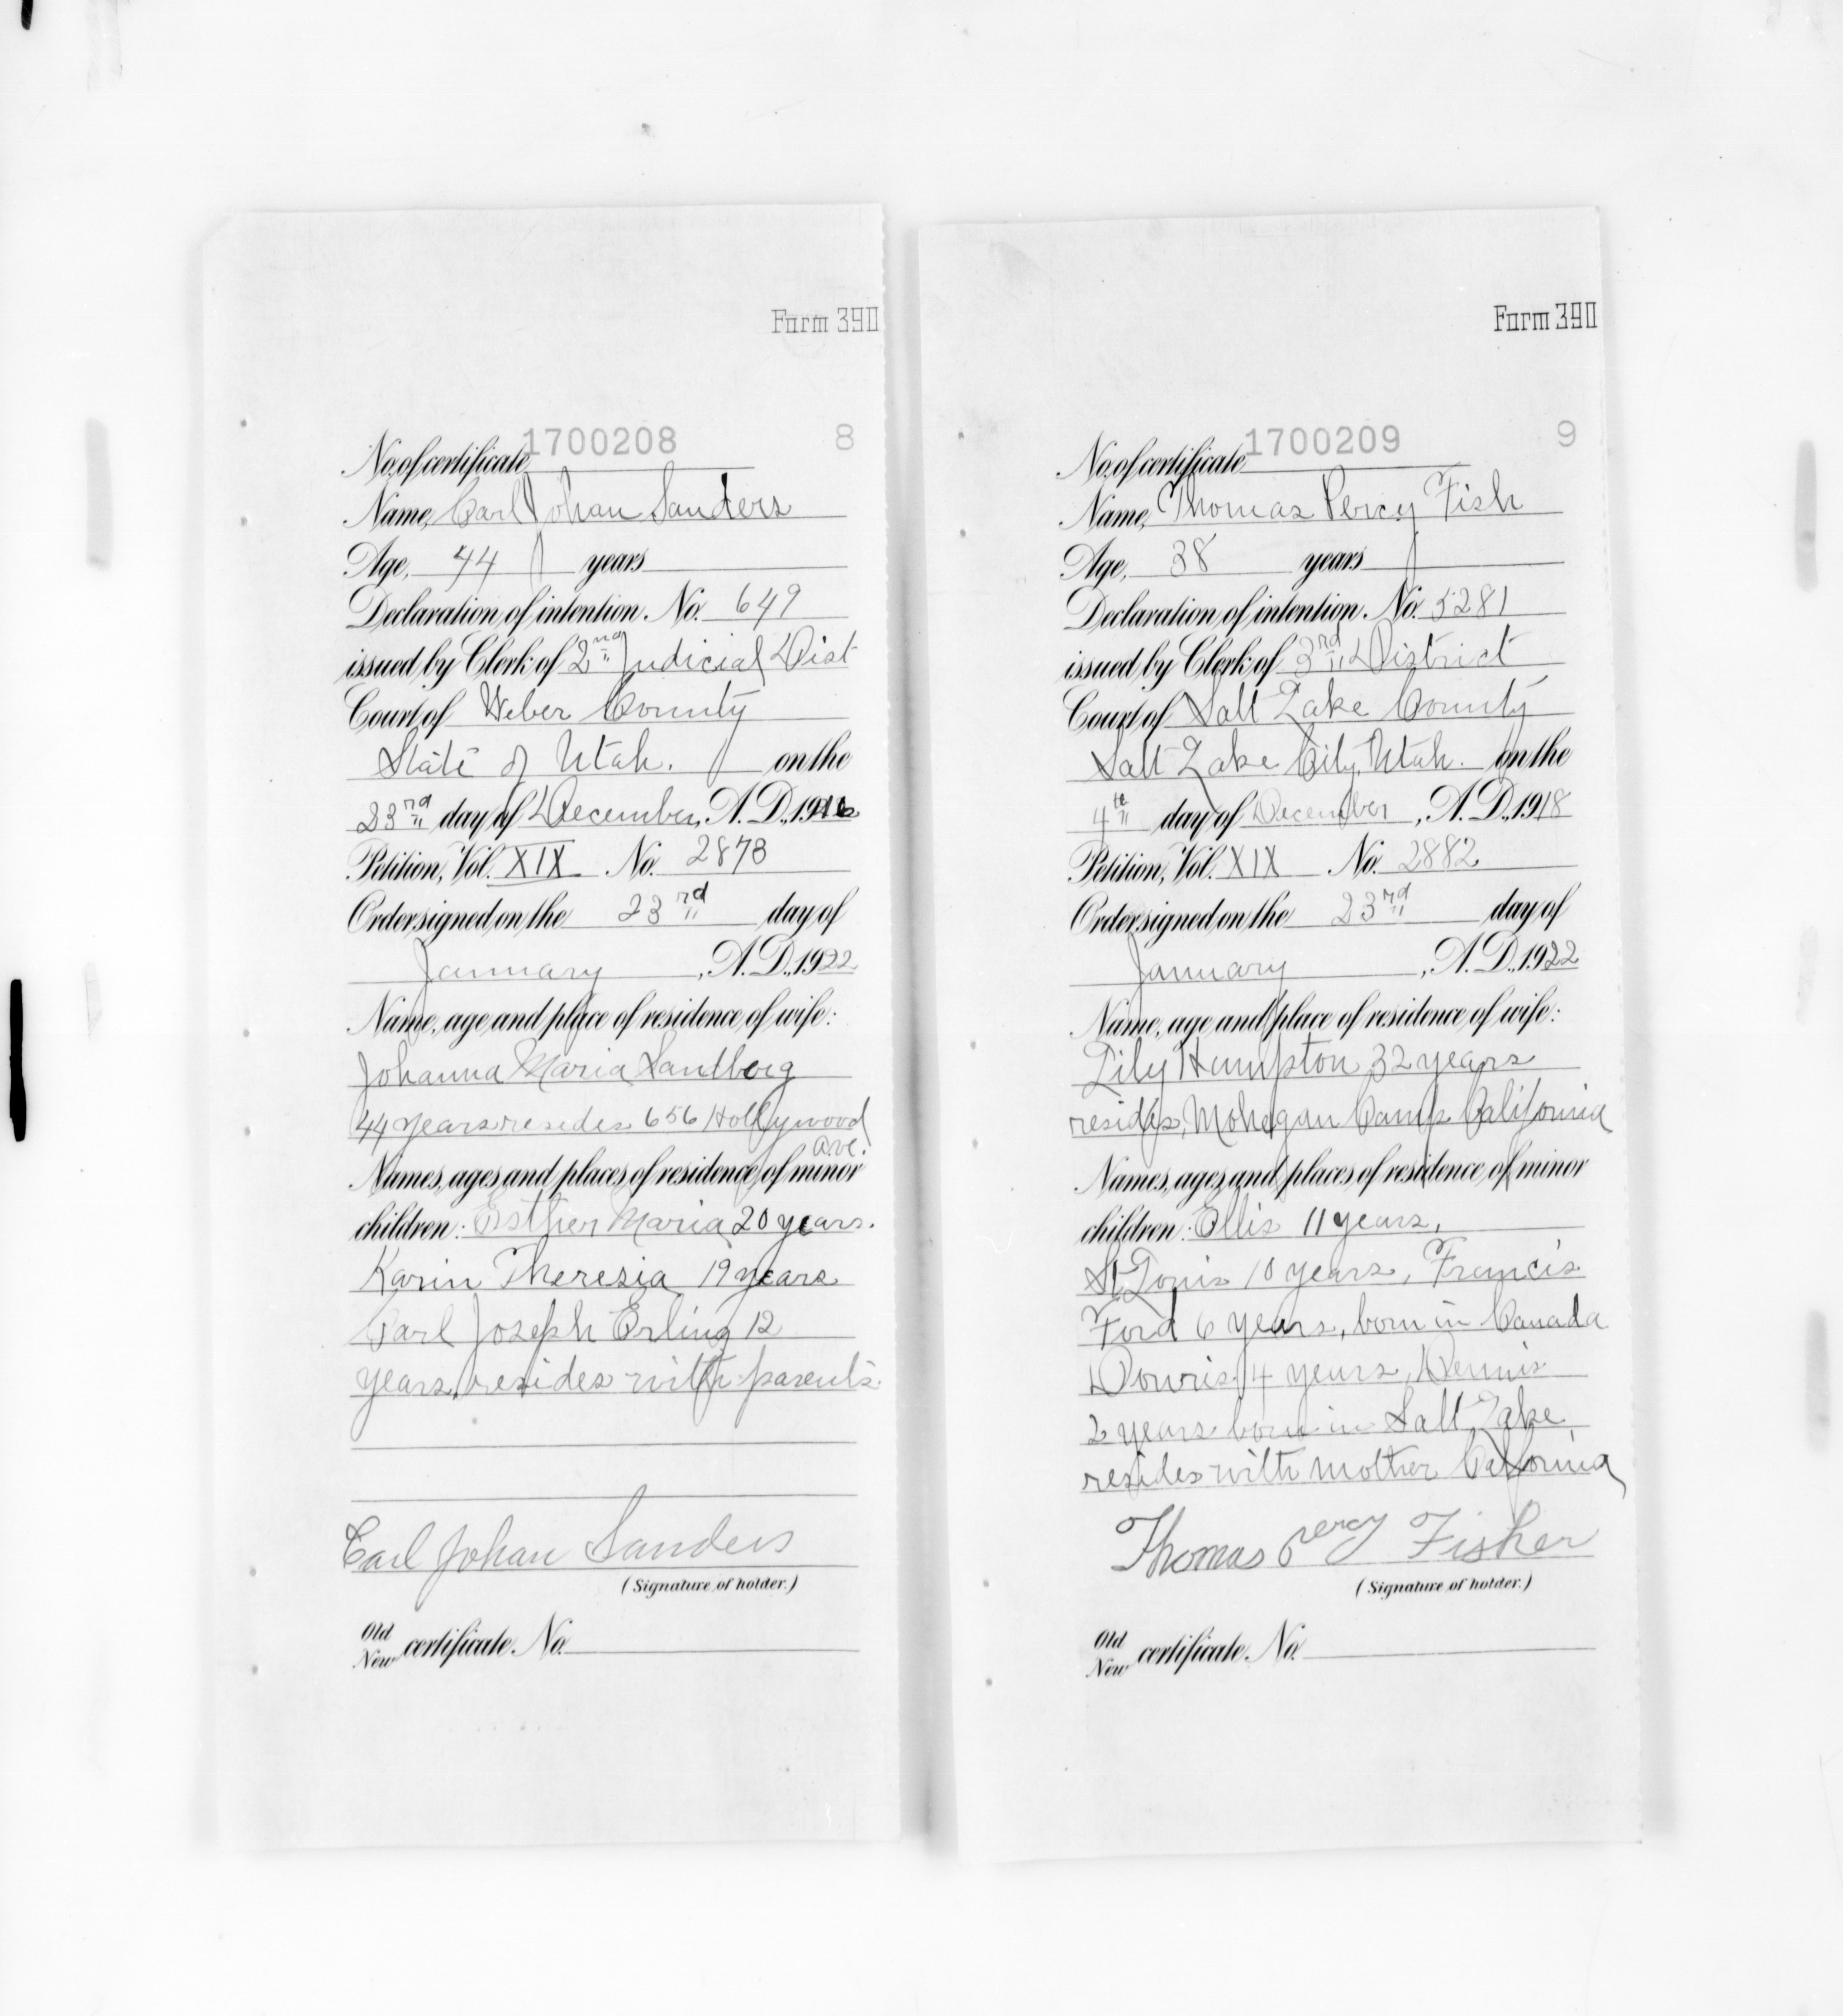 Form 390
No. of certificate 1700208 8
Name, Carl Johan Sanders
Age, 44 years
Declaration of intention. No. 649
issued by Clerk of 2nd Judicial Dist
Court of Weber County
State of Utah. on the
23rd day of December, A.D., 19
Petition, Vol. XIX No. 2873
Order signed on the 23rd day of
January, A.D., 1922
Name, age and place of residence of wife:
Johanna Maria Sandberg
44 years resides 656 Hollywood
ave.
Names, ages and places of residence of minor
children: Esther Maria 20 years.
Karin Theresia 19 years
Carl Joseph Erling 12
years, resides with parents
Carl Johan Sanders
(Signature of holder.)
Old
New certificate. No.
Form 390
No. of certificate 1700209 9
Name, Thomas Percy Fish
Age, 38 years
Declaration of intention. No. 5281
issued by Clerk of 3rd District
Court of Salt Lake County
Salt Lake City, Utah. on the
4th day of December, A.D., 1918
Petition, Vol. XIX No. 2882
Order signed on the 23rd day of
January, A.D., 1922
Name, age and place of residence of wife:
Lily Hampton 32 years
resides, Mohegan Camp California
Names, ages and places of residence of minor
children: Ellis 11 years,
St Louis 10 years, Francis
Ford 6 years, born in Canada
Douris 4 years, Dennis
2 years born in Salt Lake
resides with mother California
Thomas Percy Fisher
(Signature of holder.)
Old
New certificate. No.